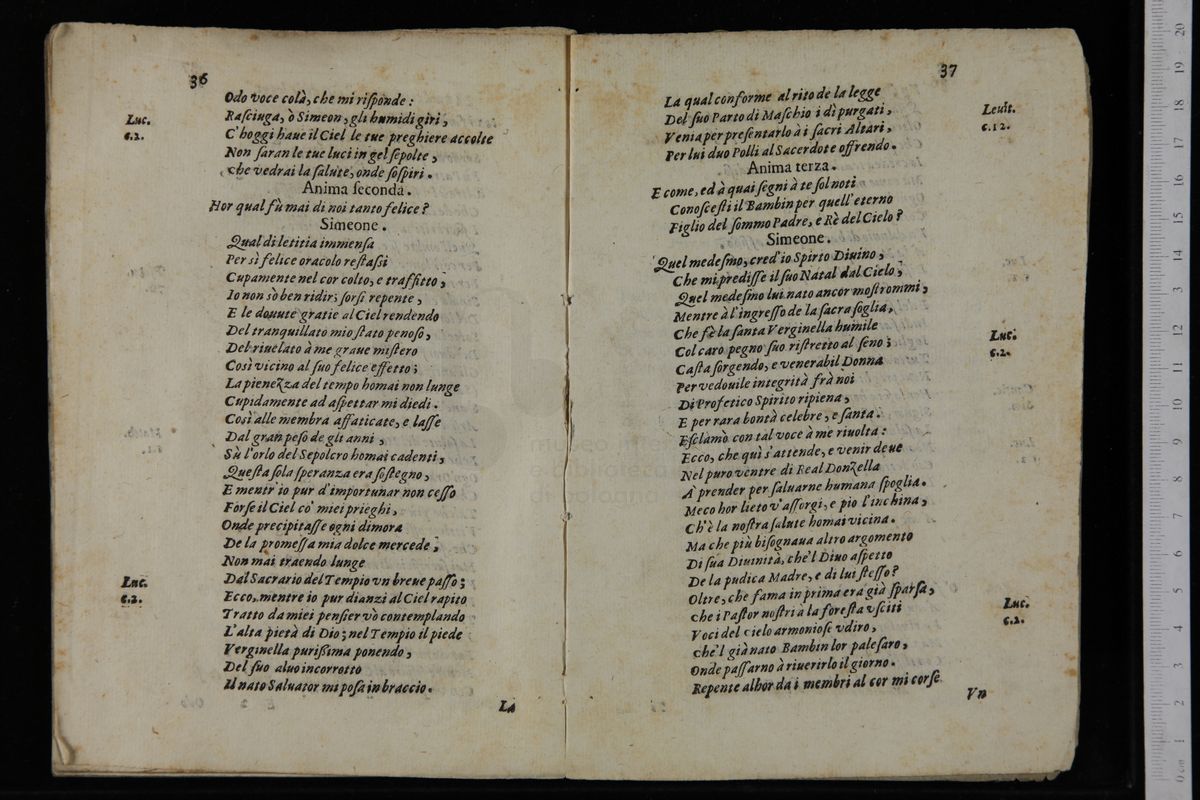 36
Odo voce colà, che mi risponde:
Luc.
c.2.
Rasciuga, ò Simeon, gli humidi giri,
C'hoggi haue il Ciel le tue preghiere accolte
Non saran le tue luci in gel sepolte,
che vedrai la salute, onde sospiri.
Anima seconda.
Hor qual fù mai di noi tanto felice?
Simeone.
Qual di letitia immensa
Per sì felice oracolo restassi
Cupamente nel cor colto, e traffitto;
Io non sò ben ridir; sorsi repente,
E le douute gratie al Ciel rendendo
Del tranquillato mio stato penoso,
Del riuelato à me graue mistero
Così vicino al suo felice effetto;
La pienezza del tempo homai non lunge
Cupidamente ad aspettar mi diedi.
Così alle membra affaticate, e lasse
Dal gran peso de gli anni,
Sù l'orlo del Sepolcro homai cadenti,
Questa sola speranza era sostegno,
E mentr'io pur d'importunar non cesso
Forse il Ciel co' miei prieghi,
Onde precipitasse ogni dimora
De la promessa mia dolce mercede;
Non mai traendo lunge
Dal Sacrario del Tempio vn breue passo;
Luc.
c.2.
Ecco, mentre io pur dianzi al Ciel rapito
Tratto da miei pensier vò contemplando
L'alta pietà di Dio; nel Tempio il piede
Verginella purissima ponendo,
Del suo aluo incorrotto
Il nato Saluator mi posa in braccio.
La
37
La qual conforme al rito de la legge
Leuit.
c.12.
Del suo Parto di Maschio i dì purgati,
Venia per presentarlo à i sacri Altari,
Per lui duo Polli al Sacerdote offrendo.
Anima terza.
E come, ed à quai segni à te sol noti
Conoscesti il Bambin per quell'eterno
Figlio del sommo Padre, e Rè del Cielo?
Simeone.
Quel medesmo, cred'io Spirto Diuino,
Che mi predisse il suo Natal dal Cielo,
Quel medesmo lui nato ancor mostrommi,
Mentre à l'ingresso de la sacra soglia,
Che fè la santa Verginella humile
Luc.
c.2.
Col caro pegno suo ristretto al seno;
Casta sorgendo, e venerabil Donna
Per vedouile integrità frà noi
Di Profetico Spirito ripiena,
E per rara bontà celebre, e santa.
Esclamò con tal voce à me riuolta:
Ecco, che quì s'attende, e venir deue
Nel puro ventre di Real Donzella
A' prender per saluarne humana spoglia.
Meco hor lieto v'assorgi, e pio l'inchina,
Ch'è la nostra salute homai vicina.
Ma che più bisognaua altro argomento
Di sua Diuinità, che'l Diuo aspetto
De la pudica Madre, e di lui stesso?
Oltre, che fama in prima era già sparsa,
Luc.
c.2.
che i Pastor nostri à la foresta vsciti
Voci del cielo armoniose vdiro,
che'l già nato Bambin lor palesaro,
Onde passarno à riuerirlo il giorno.
Repente alhor da i membri al cor mi corse
Vn